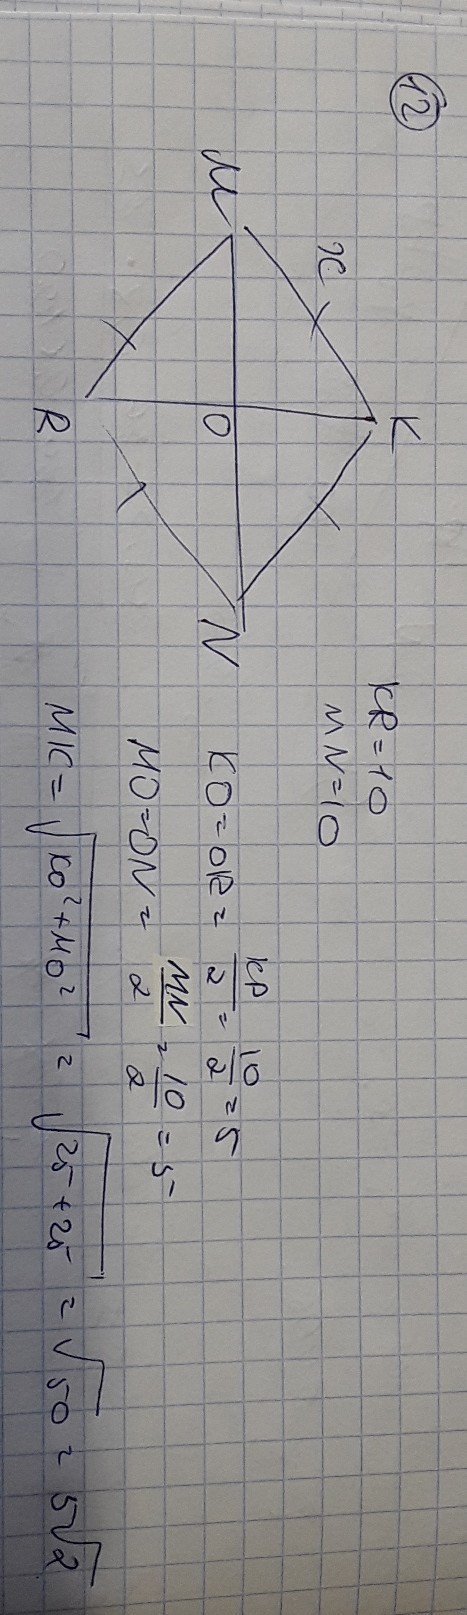 12
K
x
M
O
N
R
KR=10
MN=10
KO=OR= KP/2 = 10/2 =5
MO=ON= MN/2 = 10/2 =5
MK= √KO²+MO² = √25+25 = √50 = 5√2